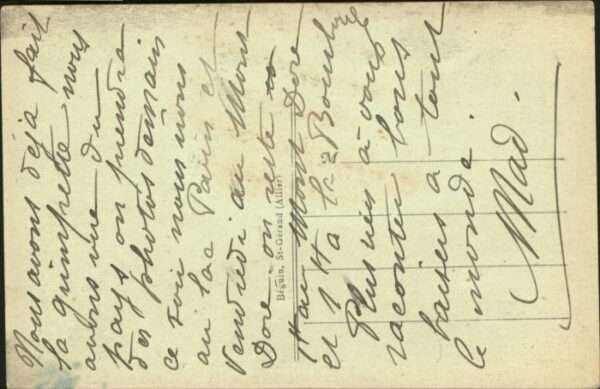 Nous avons déjà fait
la grimpette nous
avons vue du
pays on prendra
des photos demain
ce soir nous irons
au lac Pavin et
Vendredi au Mont
Dore on reste
1 H au Mont Dore
et 1 H a la Bourboule
Plus rien à vous
raconter bons
baisers a tout
le monde.
Mad.
Béguin, St-Gérand (Allier)